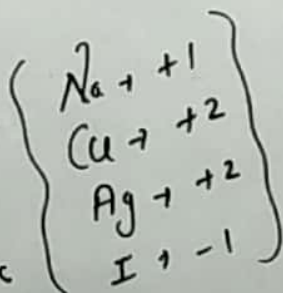 Na → +1
Cu → +2
Ag → +2
I → -1